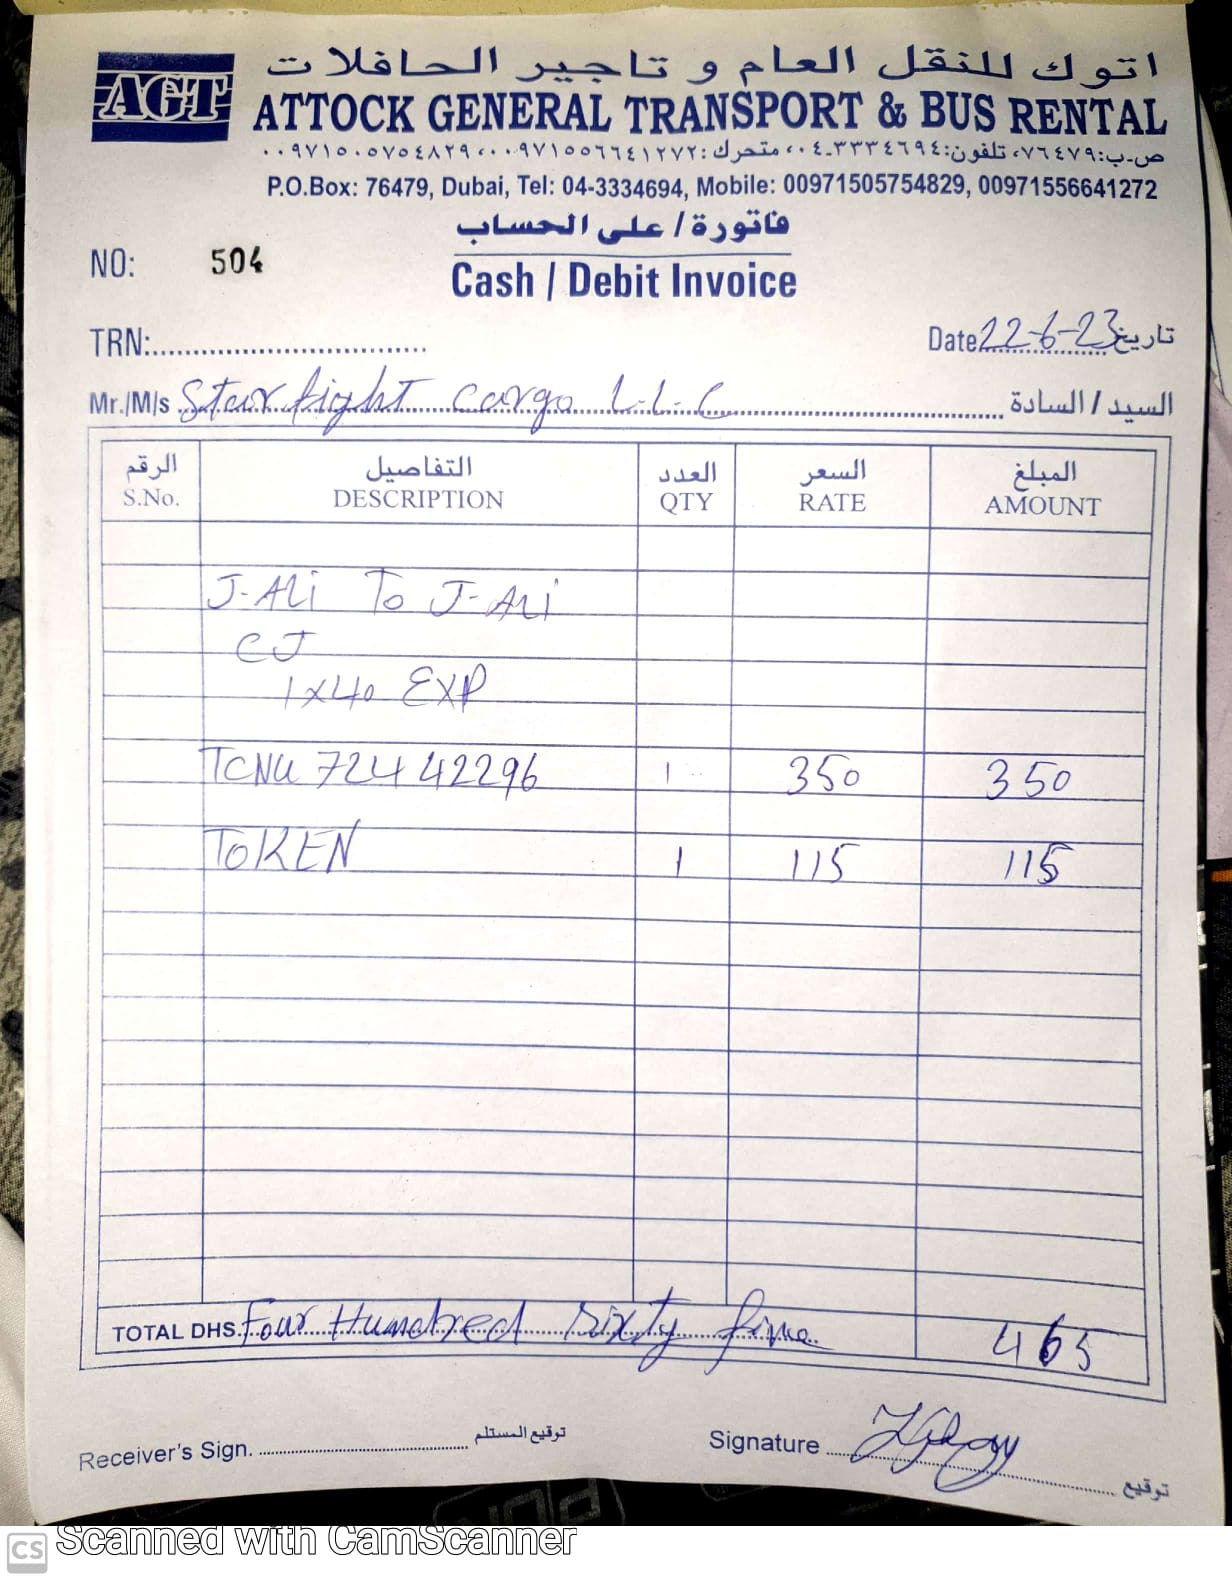 AGT
اتوك للنقل العام و تاجير الحافلات
ATTOCK GENERAL TRANSPORT & BUS RENTAL
ص.ب: ٧٦٤٧٩، تلفون: ٣٣٣٤٦٩٤-٠٤، متحرك: ٠٠٩٧١٥٥٦٦٤١٢٧٢، ٠٠٩٧١٥٠٥٧٥٤٨٢٩
P.O.Box: 76479, Dubai, Tel: 04-3334694, Mobile: 00971505754829, 00971556641272
فاتورة / على الحساب
NO: 504
Cash / Debit Invoice
TRN:
Date 22-6-23 تاريخ
Mr./M/s Star light Cargo L.L.C السيد / السادة
الرقم التفاصيل العدد السعر المبلغ
S.No. DESCRIPTION QTY RATE AMOUNT
J-Ali To J-Ali
CJ
1x40 EXP
TCNU 72442296 1 350 350
TOKEN 1 115 115
TOTAL DHS. Four Hundred Sixty five 465
Receiver's Sign. توقيع المستلم Signature توقيع
CS Scanned with CamScanner